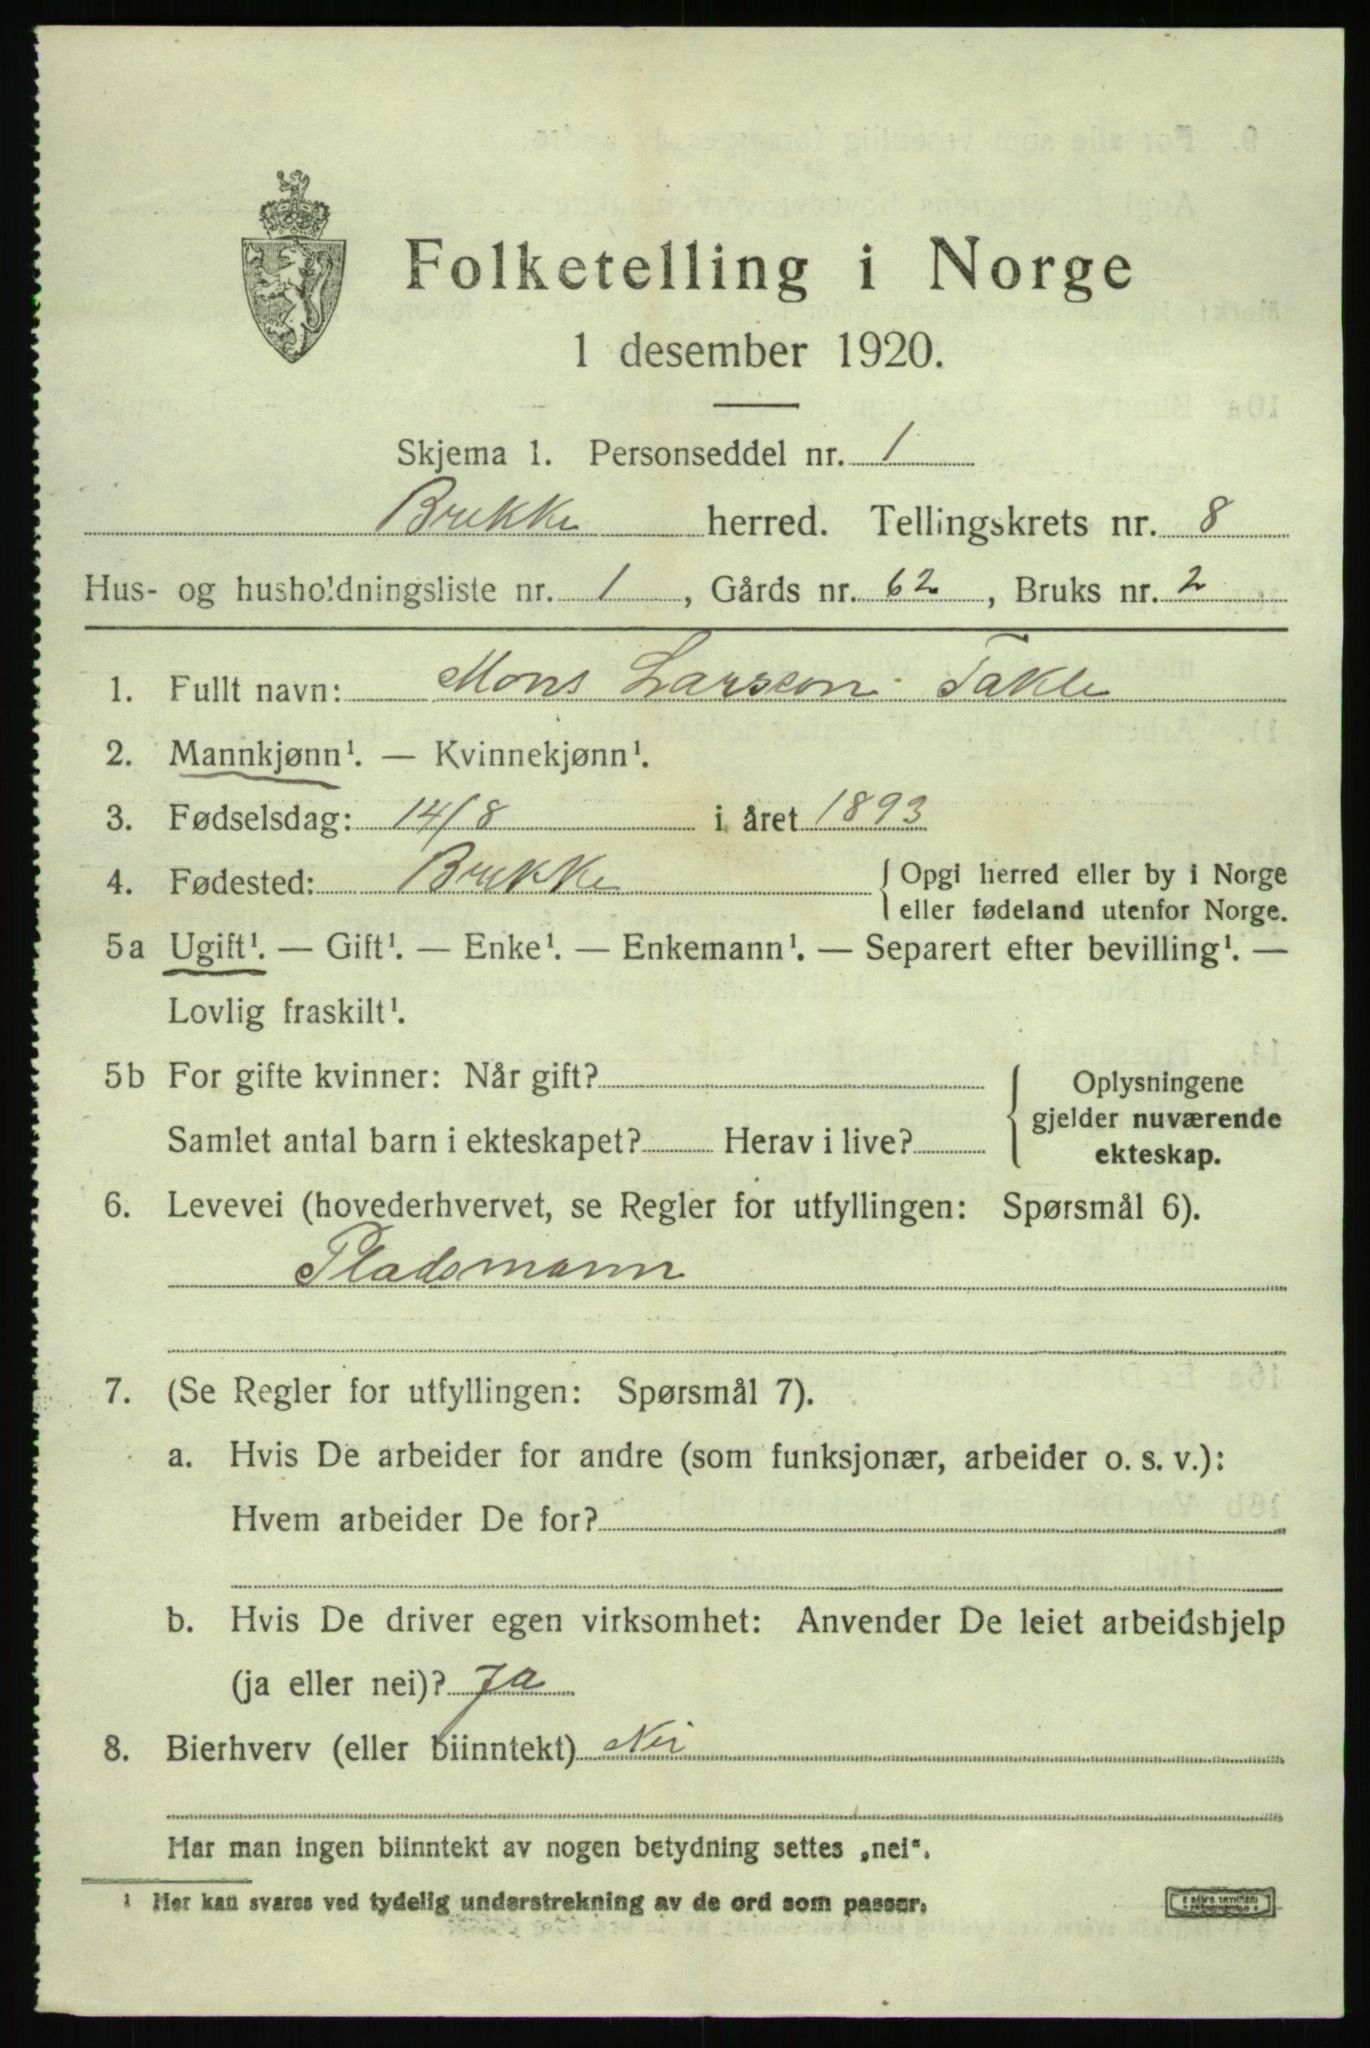 Folketelling i Norge
1 desember 1920.
Skjema 1. Personseddel nr. 1
Brekke herred. Tellingskrets nr. 8
Hus- og husholdningsliste nr. 1, Gårds nr. 62, Bruks nr. 2
1. Fullt navn: Mons Larsson Takle
2. Mannkjønn¹. — Kvinnekjønn¹.
3. Fødselsdag: 14/8 i året 1893
4. Fødested: Brekke { Opgi herred eller by i Norge
eller fødeland utenfor Norge.
5a Ugift¹. — Gift¹. — Enke¹. — Enkemann¹. — Separert efter bevilling¹. —
Lovlig fraskilt¹.
5b For gifte kvinner: Når gift?
Samlet antal barn i ekteskapet? Herav i live?
{ Oplysningene
gjelder nuværende
ekteskap.
6. Levevei (hovederhvervet, se Regler for utfyllingen: Spørsmål 6).
Pladsmann
7. (Se Regler for utfyllingen: Spørsmål 7).
a. Hvis De arbeider for andre (som funksjonær, arbeider o. s. v.):
Hvem arbeider De for?
b. Hvis De driver egen virksomhet: Anvender De leiet arbeidshjelp
(ja eller nei)? Ja
8. Bierhverv (eller biinntekt) Nei
Har man ingen biinntekt av nogen betydning settes „nei“.
¹ Her kan svares ved tydelig understrekning av de ord som passer.